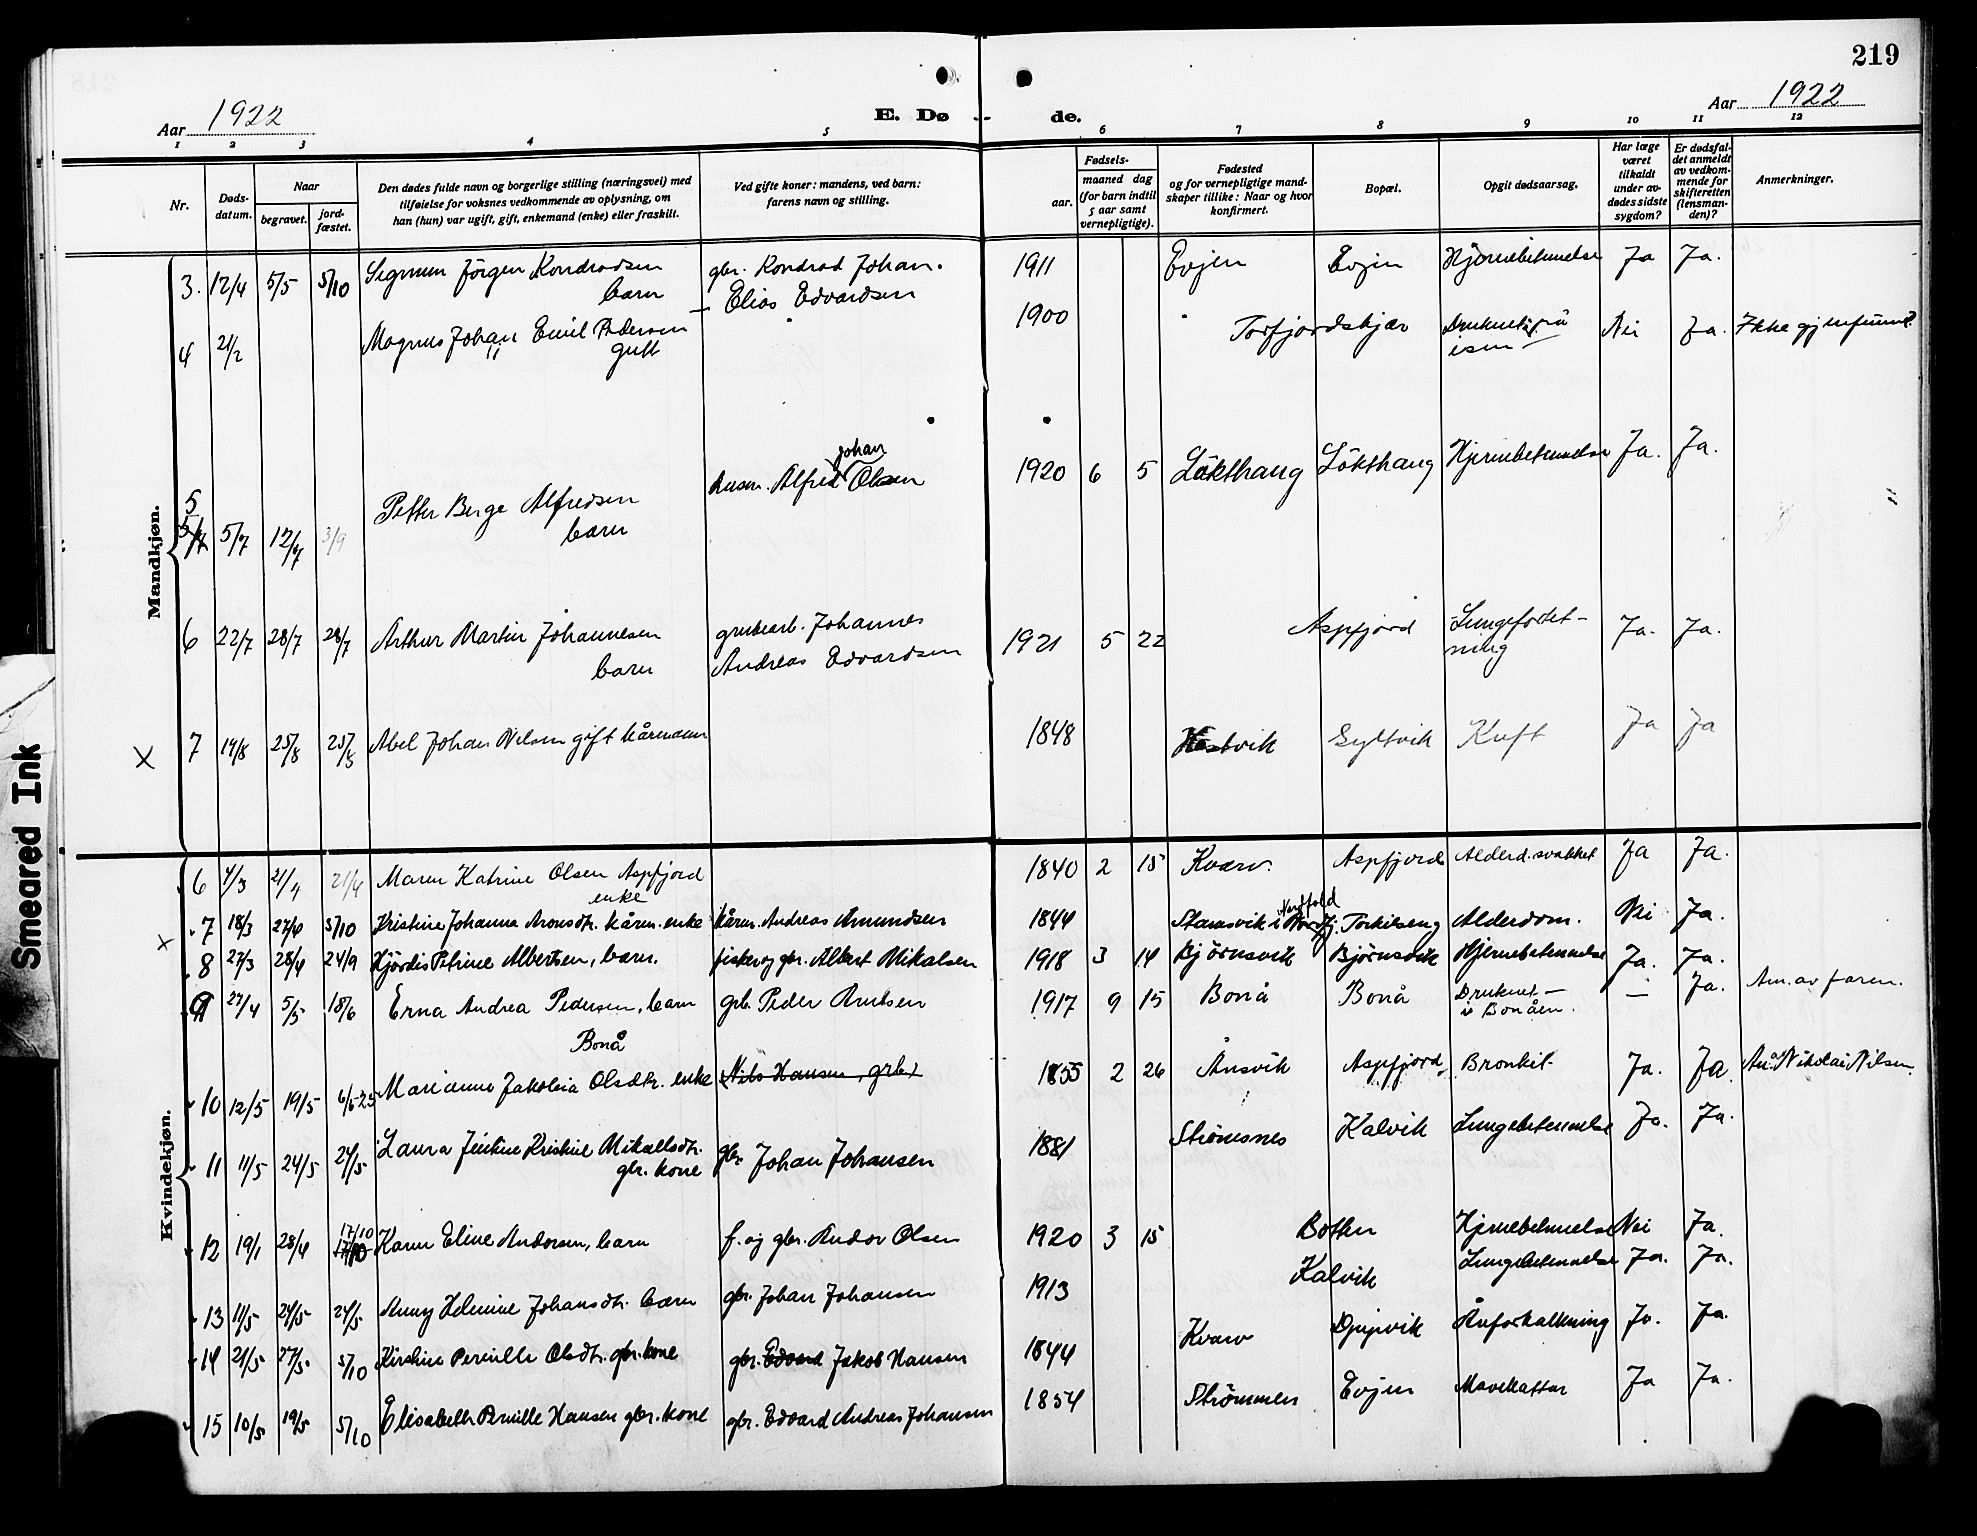 219
Aar 1922
E. Dø - de.
Aar 1922
1 2 3 4 5 6 7 8 9 10 11 12
Nr.
Døds-
datum.
Naar
begravet.
jord-
fæstet.
Den dødes fulde navn og borgerlige stilling (næringsvei) med
tilføielse for voksnes vedkommende av oplysning, om
han (hun) var ugift, gift, enkemand (enke) eller fraskilt.
Ved gifte koner: mandens, ved barn:
farens navn og stilling.
Fødsels-
aar.
maaned dag
(for barn indtil
5 aar samt
vernepligtige).
Fødested
og for vernepligtige mand-
skaper tillike: Naar og hvor
konfirmert.
Bopæl.
Opgit dødsaarsag.
Har læge
været
tilkaldt
under av-
dødes sidste
sygdom?
Er dødsfal-
det anmeldt
av vedkom-
mende for
skifteretten
(lensman-
den)?
Anmerkninger.
Mandkjøn.
3. 12/4 5/5 5/10 Sigmun Jörgen Kondradsen gbr. Kondrad Johan. 1911 Evjen Evjen Hjernebetennelse Ja Ja.
barn – Elias Edvardsen
4 21/2 Magnus Johan Emil Pedersen 1900 Torfjordskjær Druknet på Nei Ja. Ikke gjenfunnet.
gutt isen
5 5/7 12/7 3/9 Petter Berge Alfredsen Alfred Johan Olsen 1920 6 5 Lökthaug Lökthaug Hjernebetennelse Ja. Ja.
barn
6 22/7 28/7 28/7 Arthur Martin Johannesen grubearb. Johannes 1921 5 22 Aspfjord Lungefortet- Ja. Ja.
barn Andreas Edvardsen ning
X 7 19/8 25/8 Abel Johan Nilsen gift kårmann 1848 Gyltvik Kreft Ja Ja
Kvindekjøn.
6 4/3 21/4 21/4 Maren Katrine Olsen Aspfjord 1840 2 15 Kvarv. Aspfjord Alderd.svakhet Ja Ja.
enke
X 7 18/3 27/4 5/10 Kristine Johanna Aronsdtr. kårm. enke kårm. Andreas Amundsen 1844 Stamsvik i Nordfold Torkilseng Alderdom. Nei Ja.
8 27/3 28/4 24/9 Hjördis Petrine Albertsen, barn. fisker og gbr. Albert Mikalsen 1918 3 14 Bjørnsvik Bjørnsvik Hjernebetennelse Ja. Ja.
9 27/4 5/5 18/6 Erna Andrea Pedersen, barn grb. Peder Arntsen 1917 9 15 Bonå Bonå Druknet – — Ja. Anm. av faren.
Bonå i Bonåen.
10 12/5 19/5 Marianne Jakobia Olsdtr. enke Nils Hansen, grb. 1855 2 26 Ånsvik Aspfjord Bronkit Ja. Ja. Nikolai Nilsen.
11 11/5 24/5 24/5 Laura Kristine Mikalsdtr. gbr. Johan Johansen 1881 Strömsnes Kalvik Lungebetennelse Ja. Ja.
gbr. kone
12 19/1 28/4 17/10 Karen Eline Andorsen, barn f. og gbr. Andor Olsen 1920 3 15 Botten Hjernebetennelse Nei Ja.
13 11/5 24/5 24/5 Helmine Johansdtr. barn gbr. Johan Johansen 1913 Kalvik Lungebetennelse Ja. Ja.
14 21/5 27/5 5/10 Kirstine Pernille Olsdtr. gbr. kone gbr. Edvard Jakob Hansen 1844 Kvarv Djupvik Åreforkalkning Ja. Ja.
15 10/5 19/5 5/10 Elisabeth Pernille Hansen gbr. kone gbr. Edvard Andreas Johansen 1854 Strömmen Evjen Mavekattar Ja Ja.
Smeared Ink